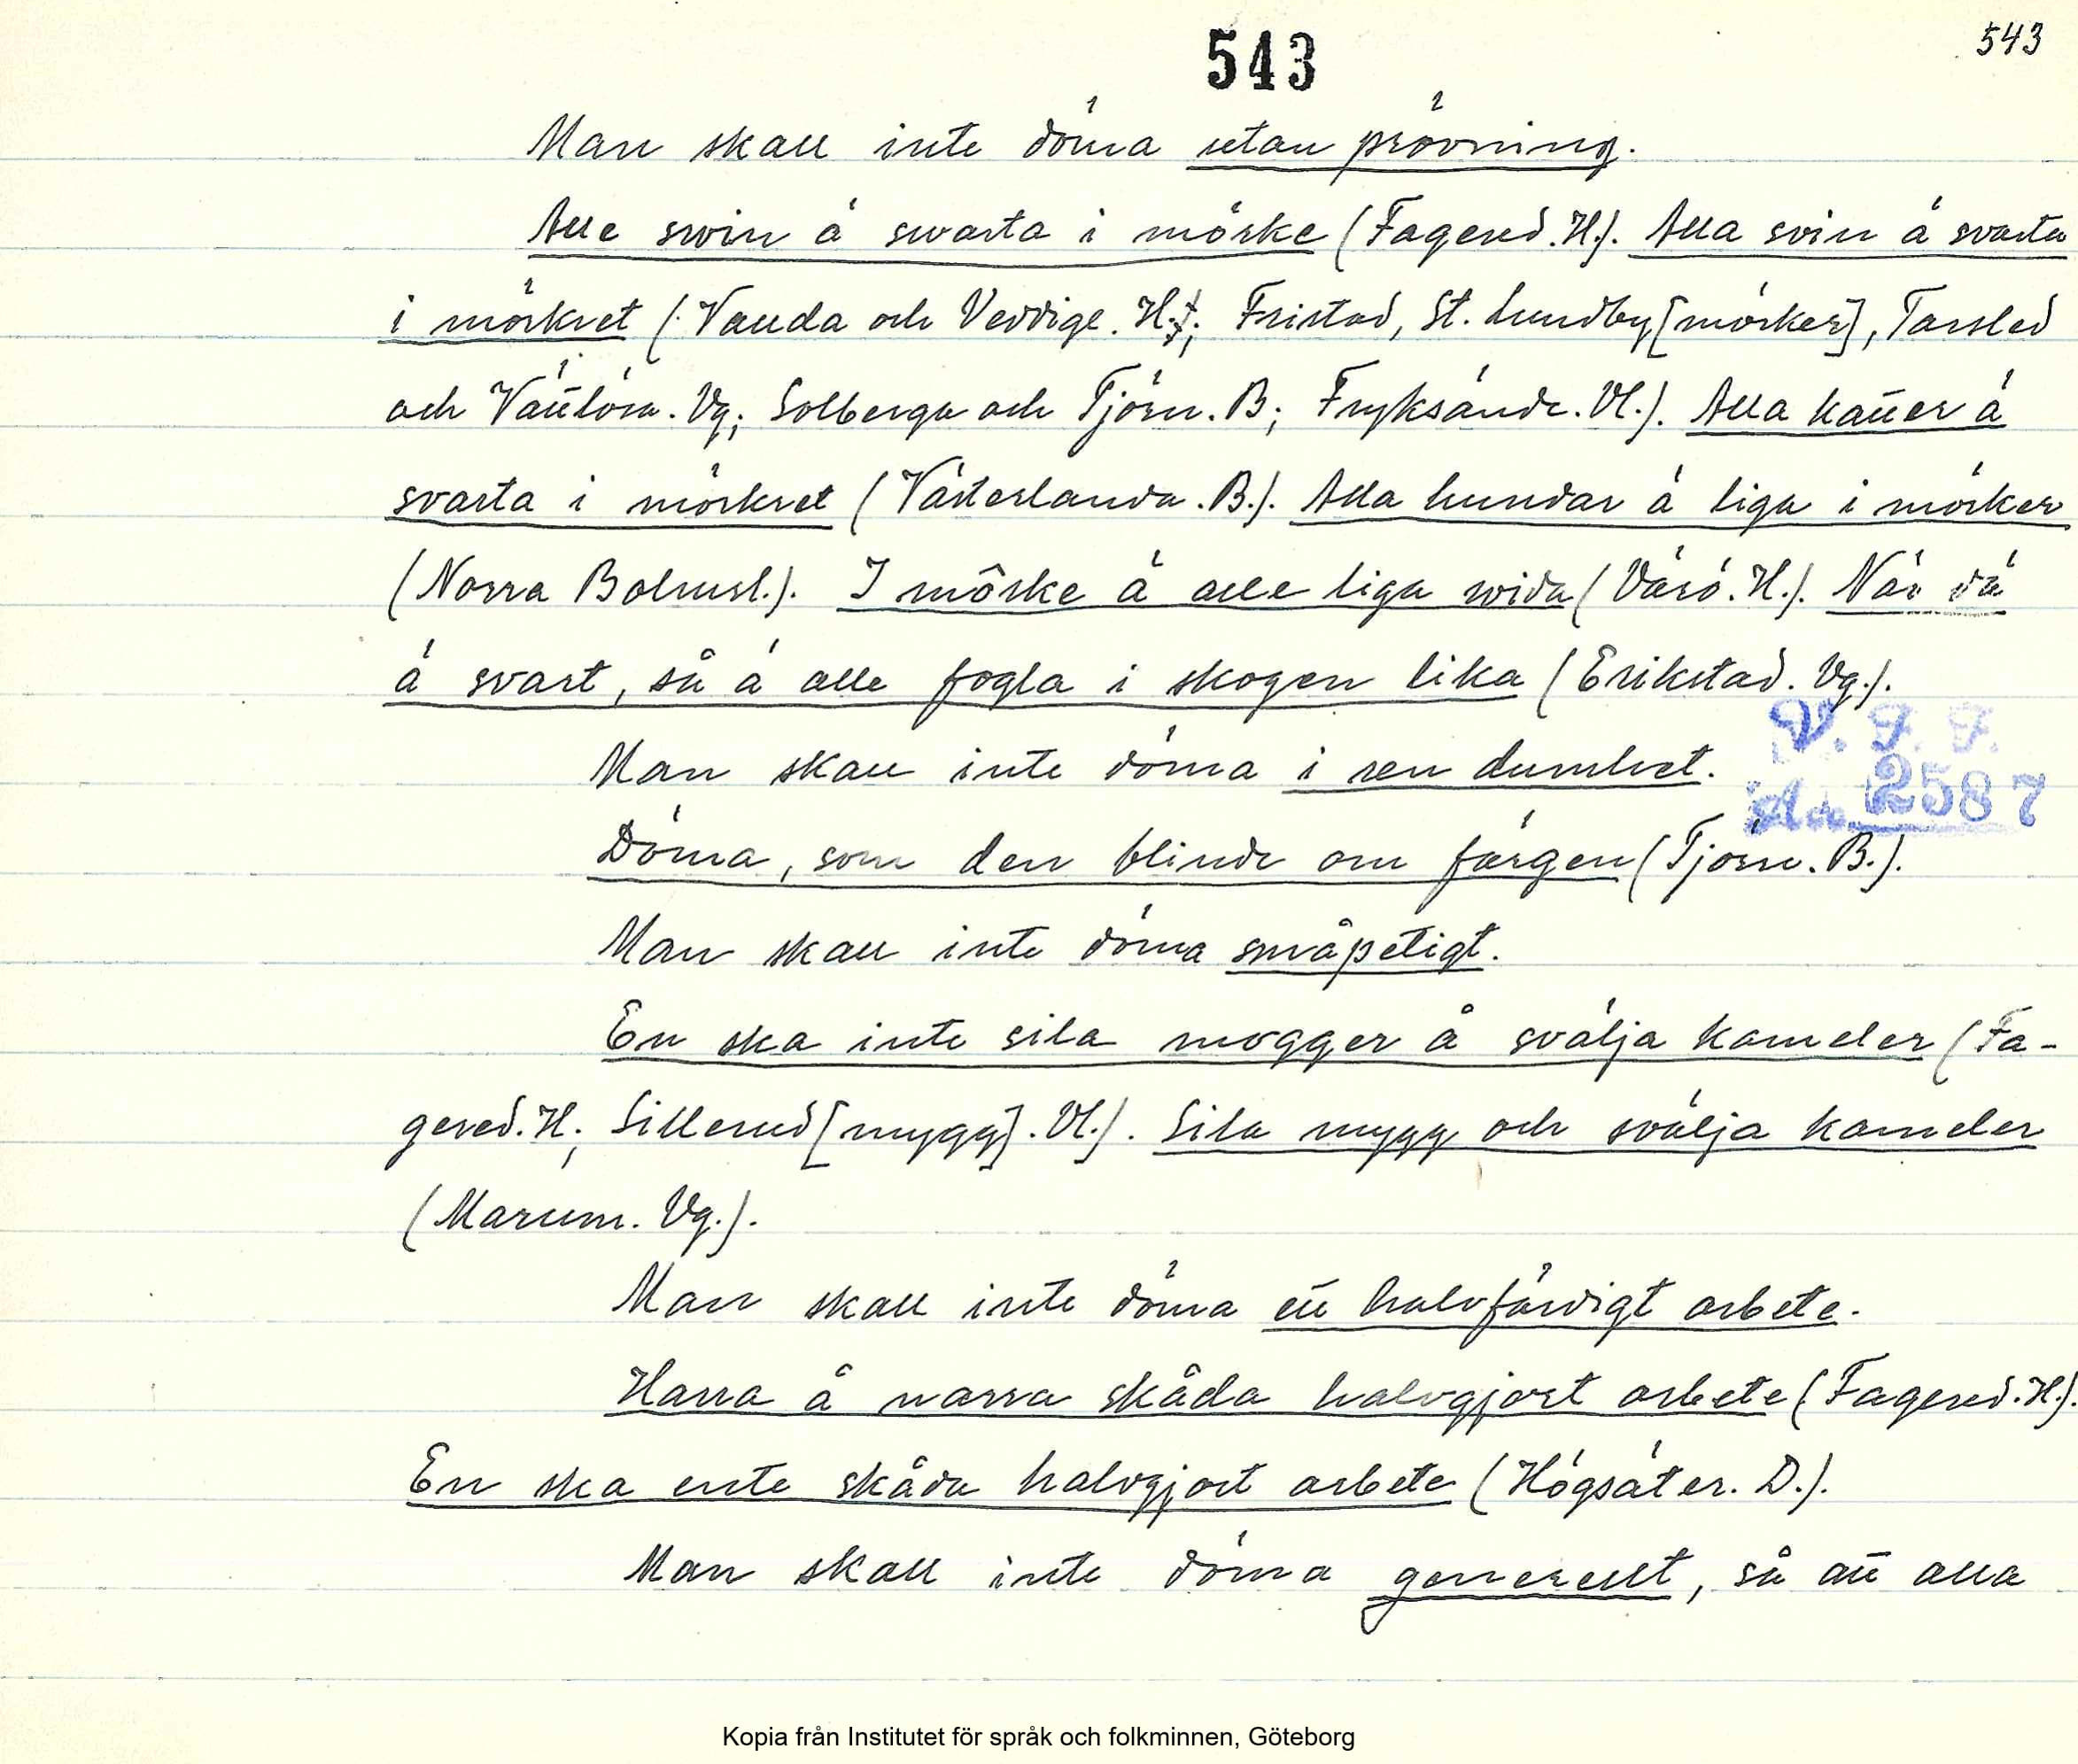 543
543
Man skall inte döma utan prövning.
Alle swin ä swarta i mörke (Fagered. H.). Alla svin ä svarta
i mörkret (Vauda och Veddige. H.; Fristad, St. Lundby [mörker], Tarsled
och Vättlösa. Vg; Solberga och Tjörn. B; Fryksände. Vl.). Alla katter ä
svarta i mörkret (Västerlanda. B.). Alla hundar ä liga i mörker
(Norra Bohusl.). I mörke ä alle liga wida (Värö. H.). När dä
ä svart, så ä alle fogla i skogen lika (Erikstad. Vg.).
Man skall inte döma i ren dumhet.
V. F. F.
Acc. 2587
Döma, som den blinde om färgen (Tjörn. B.).
Man skall inte döma småpetigt.
En ska inte sila mogger å svälja kameler (Fa-
gered. H; Sillerud [mygg]. Vl.). Sila mygg och svälja kameler
(Marum. Vg.).
Man skall inte döma ett halvfärdigt arbete.
Harra å narra skåda halvgjort arbete (Fagered. H.).
En ska ente skåda halvgjort arbete (Högsäter. D.).
Man skall inte döma generellt, så att alla
Kopia från Institutet för språk och folkminnen, Göteborg